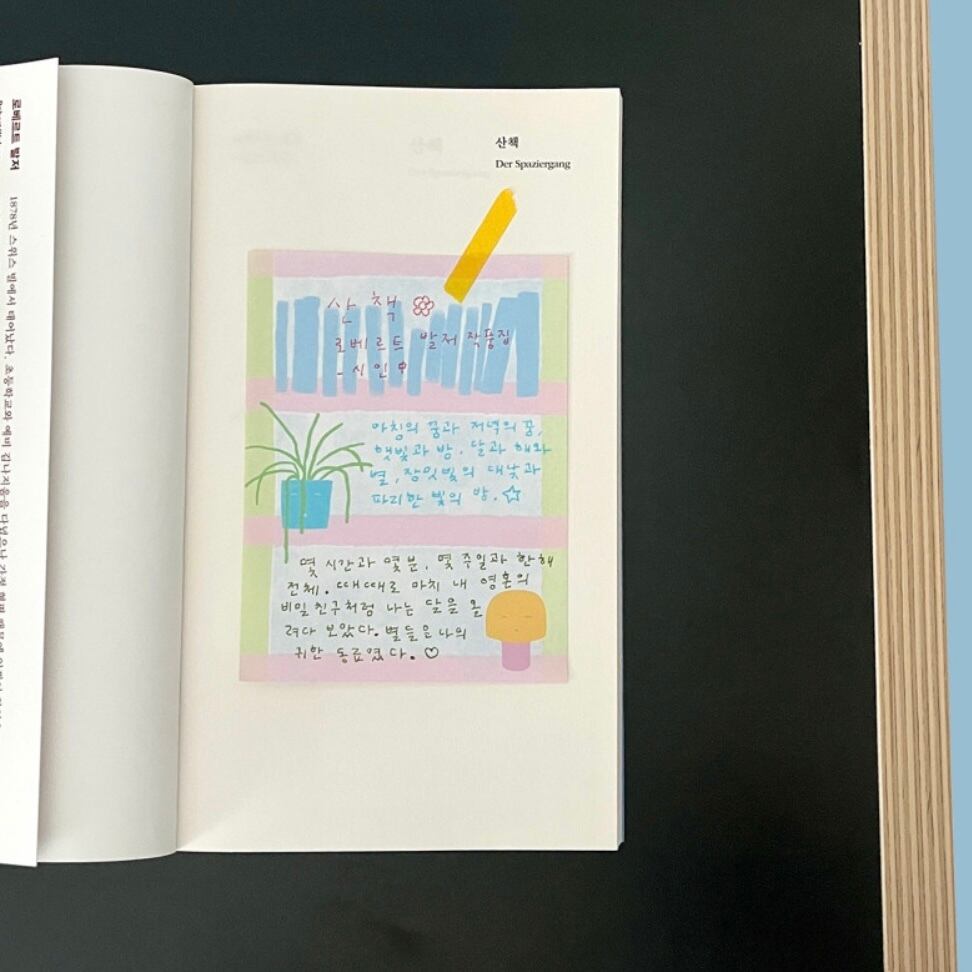 로베르트 발저
1878년 스위스 빌에서 태어났다. 초등학교와 예비 김나지움을 다녔으나
산책
Der Spaziergang
산책
로베르트 발저 작품집
- 시인 中
아침의 꿈과 저녁의 꿈,
햇빛과 밤. 달과 해와
별, 장밋빛의 대낮과
파리한 빛의 밤.
몇 시간과 몇 분, 몇 주일과 한 해
전체. 때때로 마치 내 영혼의
비밀 친구처럼 나는 달을 올
려다 보았다. 별들은 나의
귀한 동료였다. ♡